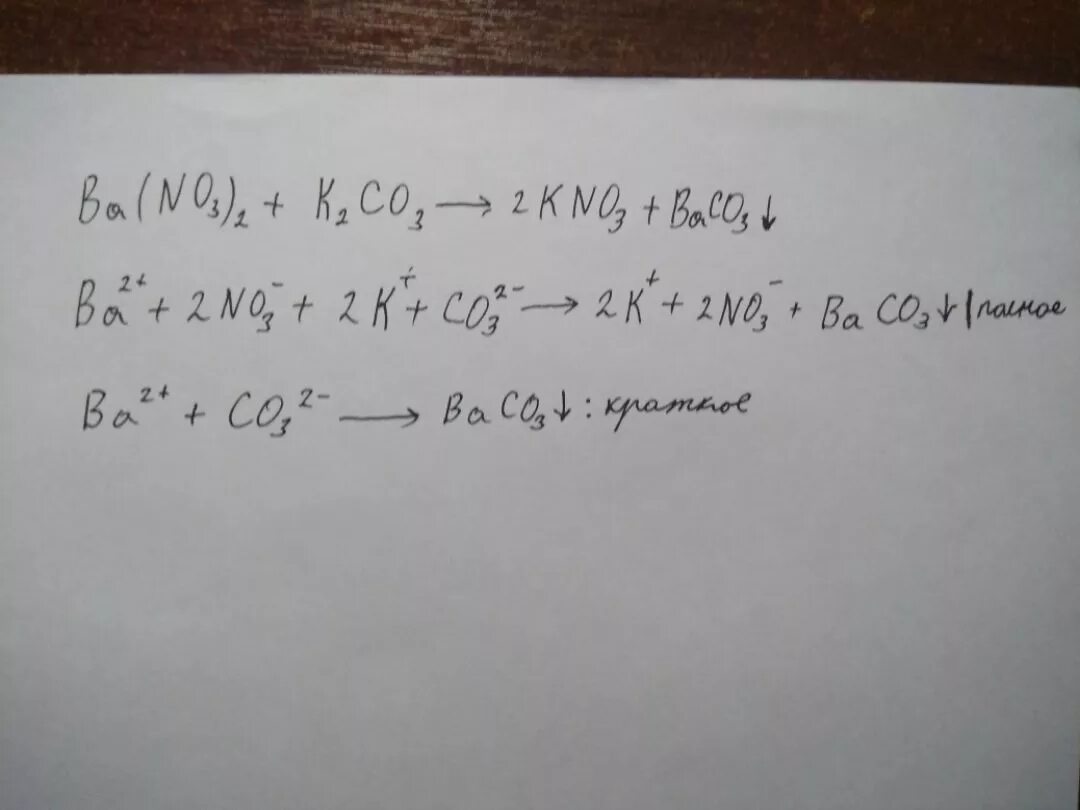 Ba(NO₃)₂ + K₂CO₃ → 2KNO₃ + BaCO₃↓
Ba²⁺ + 2NO₃⁻ + 2K⁺ + CO₃²⁻ → 2K⁺ + 2NO₃⁻ + BaCO₃↓ | полное
Ba²⁺ + CO₃²⁻ → BaCO₃↓ : краткое